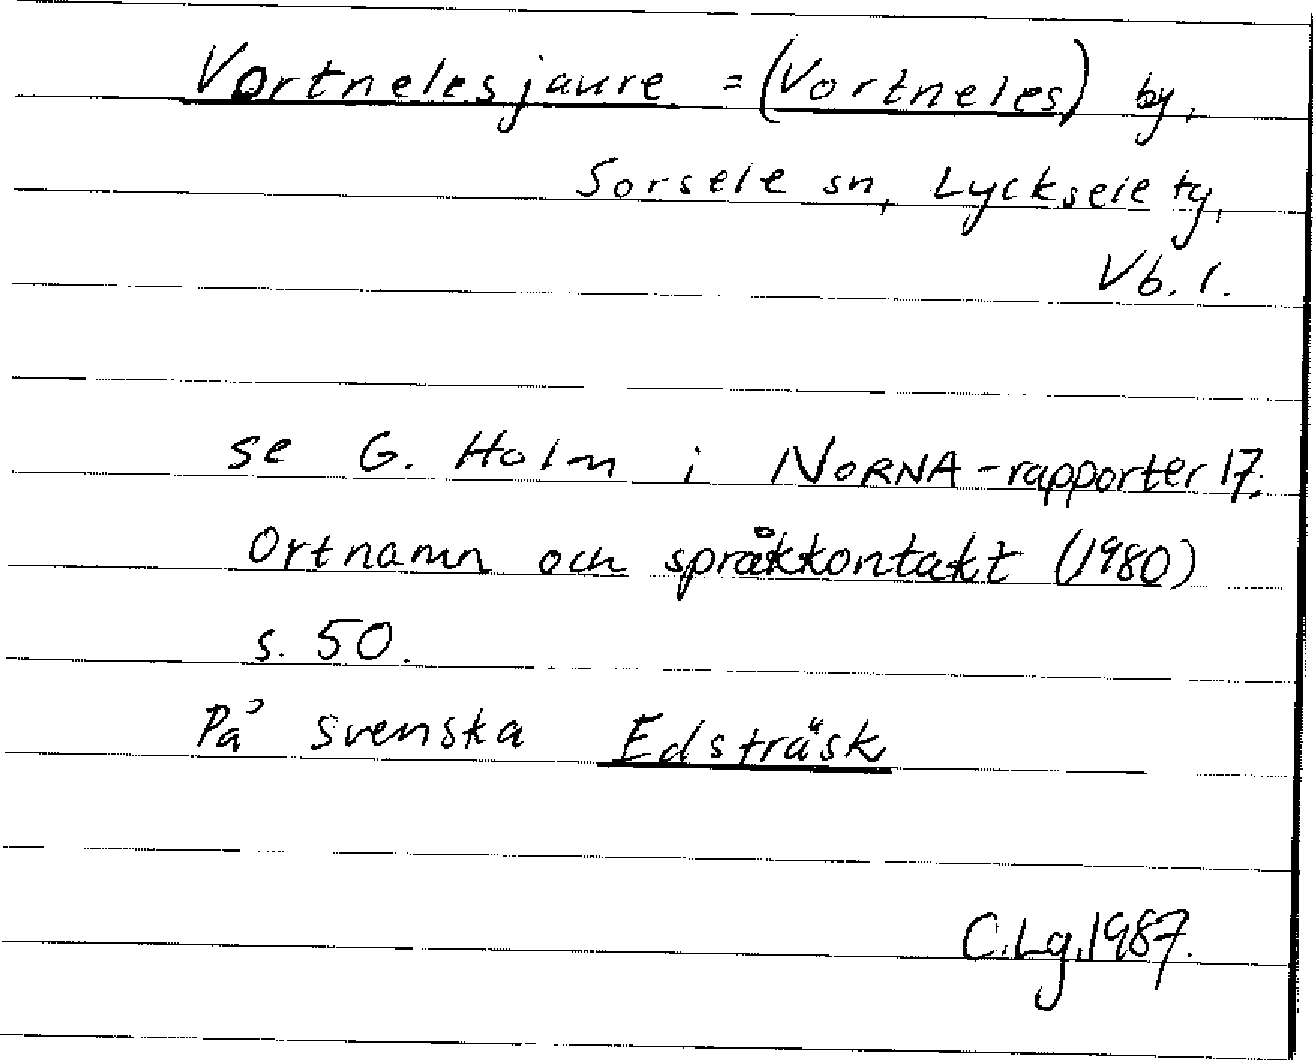 Vortnelesjaure = (Vortneles) by,
Sorsele sn, Lycksele ty,
Vb. l.
se G. Holm i NORNA-rapporter 17:
Ortnamn och språkkontakt (1980)
s. 50.
På svenska Edsträsk
C.Lg.1987.